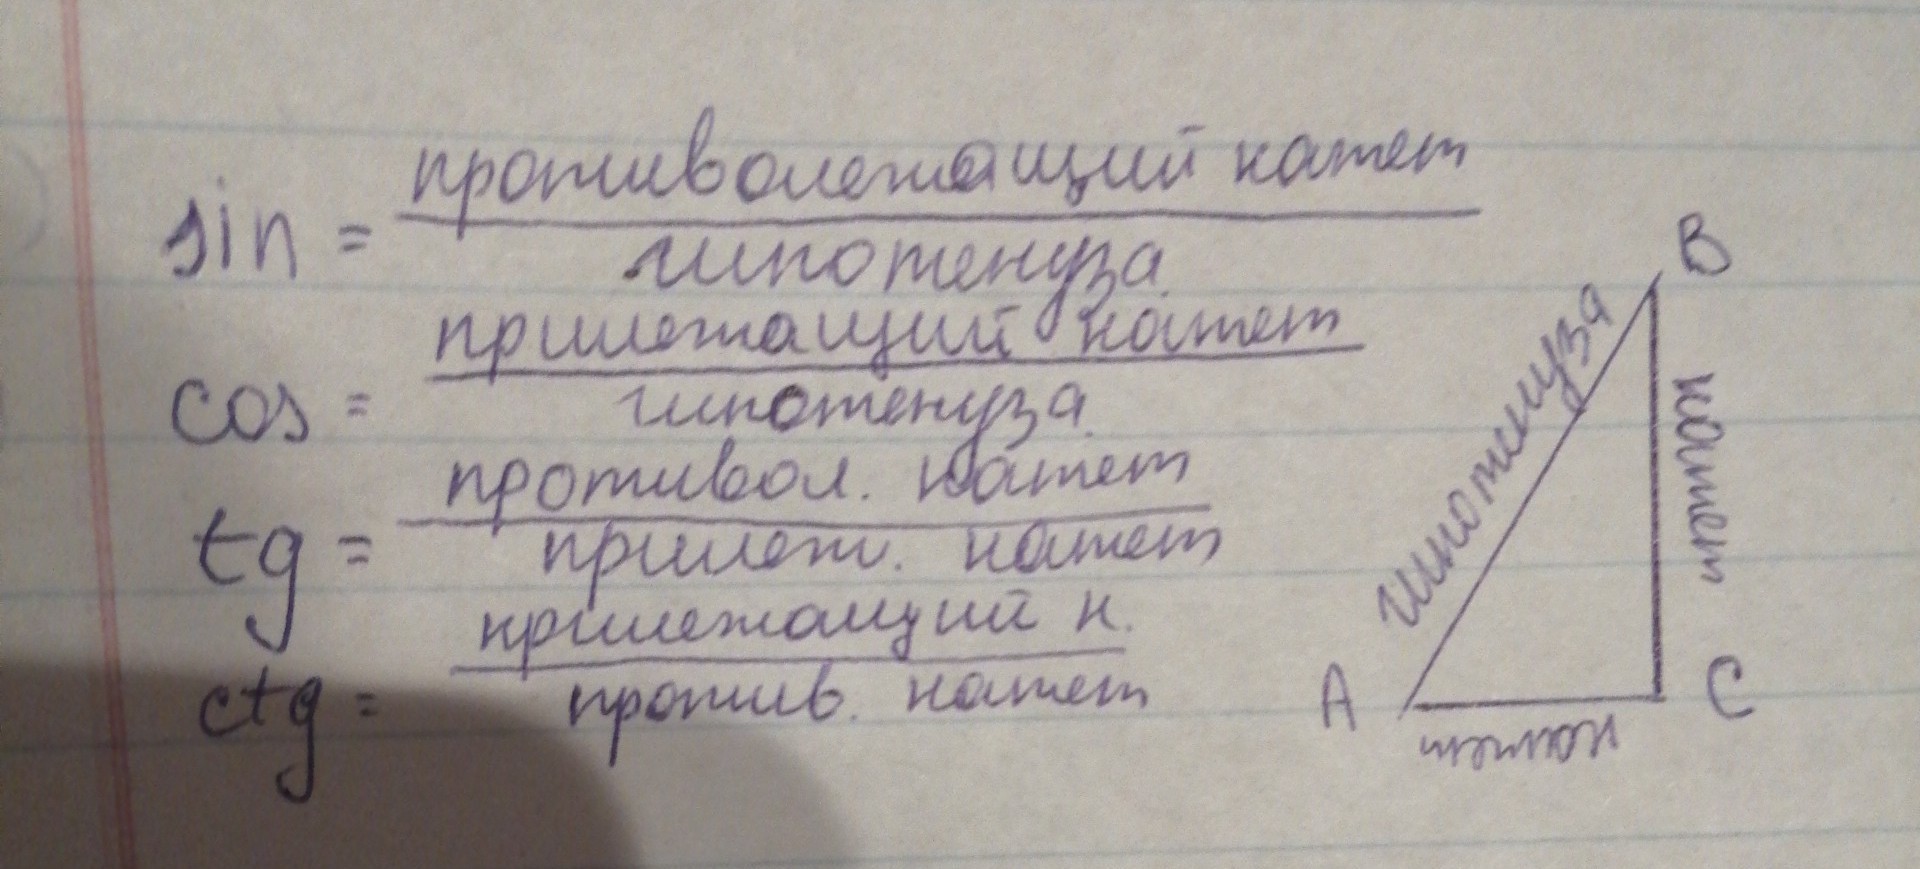 противолежащий катет
sin =
гипотенуза
прилежащий катет
cos =
гипотенуза
противол. катет
tg =
прилеж. катет
прилежащий к.
ctg =
против. катет
B
гипотенуза
катет
A
C
катет